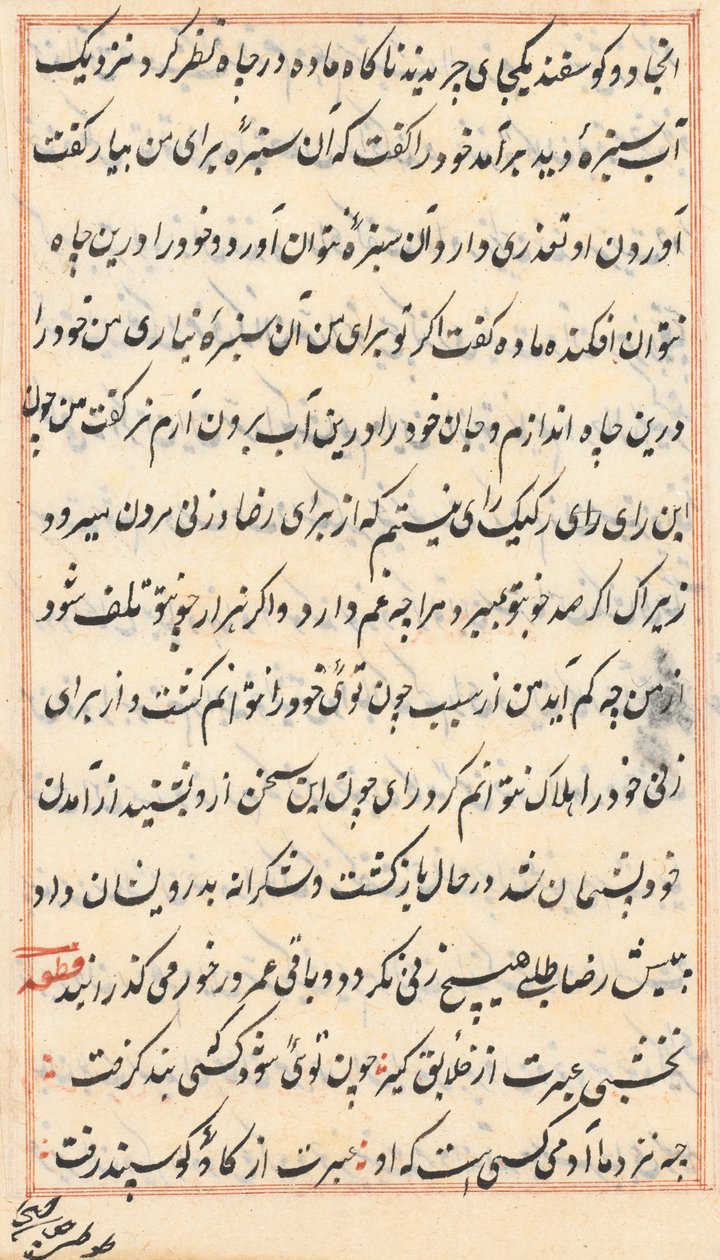 انجا دو کوسفند یکجای چریدند ناکاه ماده در چاه نظر کرد نزدیک
آب سبزهٔ دید برآمد خود را کفت که آن سبزهٔ برای من بیار کفت
آوردن او تعذری دارد آن سبزهٔ نتوان آورد و خود را درین چاه
نتوان افکند ماده کفت اکر تو برای من آن سبزهٔ نیاری من خود را
درین چاه اندازم و جان خود را درین آب برون آرم نر کفت من چون
این رای رای رکیک رای نیستم که از برای رضا و زنی مردن میرود
زیراک اکر صد خو بتو بمیرد مرا چه غم دارد و اکر هزار چو تو تلف شود
از من چه کم آید من از سبب چون توئی خود را نتوانم کشت و از برای
زنی خود را هلاک نتوانم کرد رای چون این سخن ازو بشنید از آمدن
خود پشیمان شد در حال باز کشت و شکرانه بدرویشان داد
پیش رضا طلبی هیچ زنی نکرد و باقی عمر در خورمی کذرانید قطعه
نخشبی عبرت از خلایق کیر چون توئی شوخ کشی بند کرفت
چه نزد ما آدمی کسی است که او عبرت از کاو و کوسپند رفت